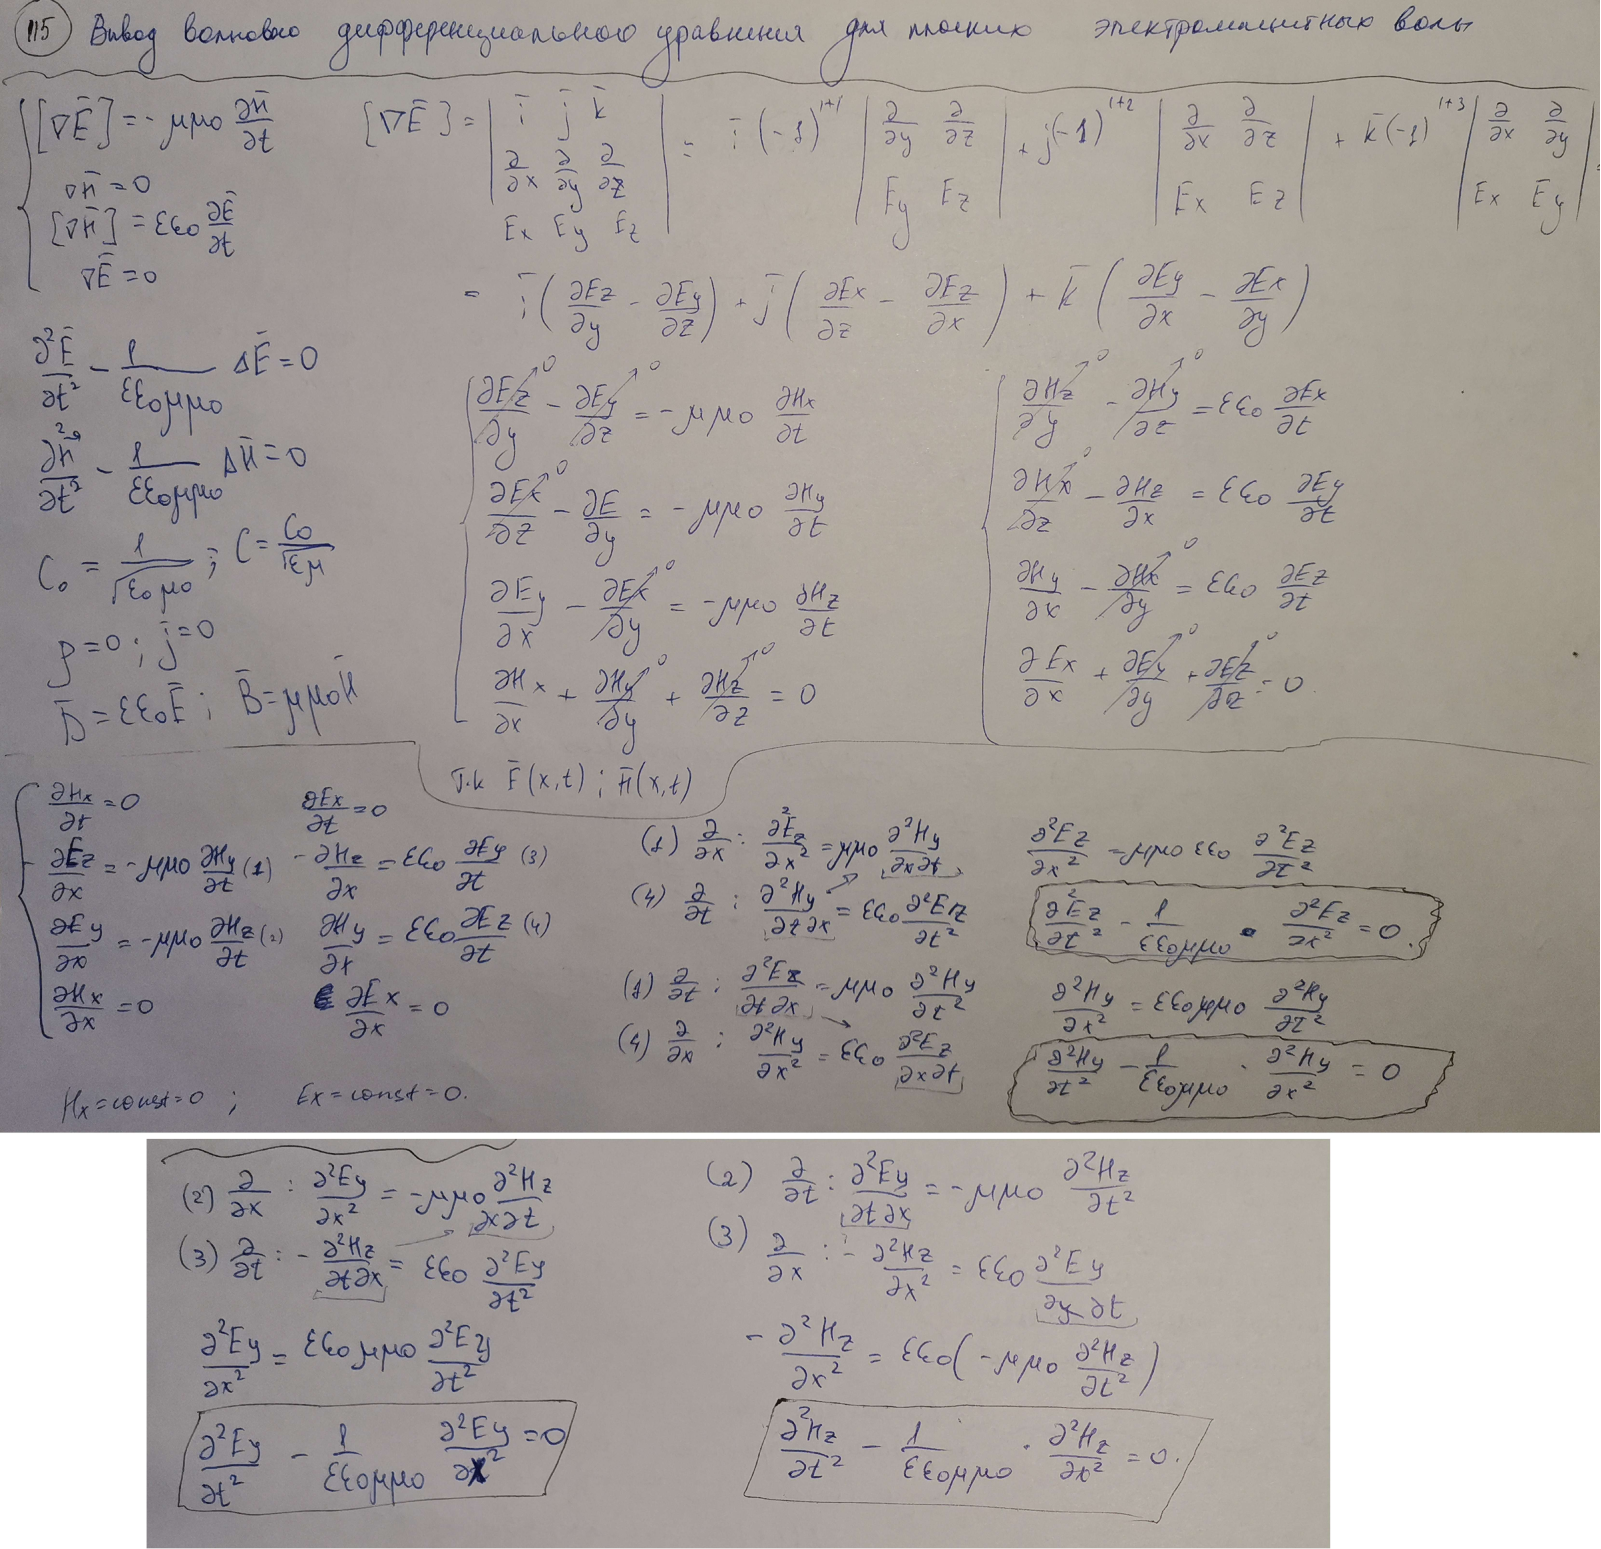 115 Вывод волнового дифференциального уравнения для плоских электромагнитных волн
[∇Ē] = -μμ₀ ∂H̄/∂t
∇H̄ = 0
[∇H̄] = εε₀ ∂Ē/∂t
∇Ē = 0
[∇Ē] = | ī j̄ k̄ ; ∂/∂x ∂/∂y ∂/∂z ; Ex Ey Ez | = ī(-1)¹⁺¹ | ∂/∂y ∂/∂z ; Ey Ez | + j(-1)¹⁺² | ∂/∂x ∂/∂z ; Ex Ez | + k̄(-1)¹⁺³ | ∂/∂x ∂/∂y ; Ex Ey | =
= ī(∂Ez/∂y - ∂Ey/∂z) + j̄(∂Ex/∂z - ∂Ez/∂x) + k̄(∂Ey/∂x - ∂Ex/∂y)
∂²Ē/∂t² - 1/(εε₀μμ₀) ΔĒ = 0
∂²H̄/∂t² - 1/(εε₀μμ₀) ΔH̄ = 0
C₀ = 1/√(ε₀μ₀) ; C = C₀/√(εμ)
ρ = 0 ; j̄ = 0
D̄ = εε₀Ē ; B̄ = μμ₀H̄
∂Ez/∂y ↗0 - ∂Ey/∂z ↗0 = -μμ₀ ∂Hx/∂t
∂Ex/∂z ↗0 - ∂E/∂y = -μμ₀ ∂Hy/∂t
∂Ey/∂x - ∂Ex/∂y ↗0 = -μμ₀ ∂Hz/∂t
∂Hx/∂x + ∂Hy/∂y ↗0 + ∂Hz/∂z ↗0 = 0
∂Hz/∂y ↗0 - ∂Hy/∂z ↗0 = εε₀ ∂Ex/∂t
∂Hx/∂z ↗0 - ∂Hz/∂x = εε₀ ∂Ey/∂t
∂Hy/∂x - ∂Hx/∂y ↗0 = εε₀ ∂Ez/∂t
∂Ex/∂x + ∂Ey/∂y ↗0 + ∂Ez/∂z ↗0 = 0.
Т.к Ē(x,t) ; H̄(x,t)
∂Hx/∂t = 0 ∂Ex/∂t = 0
-∂Ez/∂x = -μμ₀ ∂Hy/∂t (1) -∂Hz/∂x = εε₀ ∂Ey/∂t (3)
∂Ey/∂x = -μμ₀ ∂Hz/∂t (2) ∂Hy/∂x = εε₀ ∂Ez/∂t (4)
∂Hx/∂x = 0 ∂Ex/∂x = 0
Hx = const = 0 ; Ex = const = 0.
(1) ∂/∂x : ∂²Ez/∂x² = μμ₀ ∂²Hy/∂x∂t
(4) ∂/∂t : ∂²Hy/∂t∂x = εε₀ ∂²Ez/∂t²
∂²Ez/∂x² = μμ₀εε₀ ∂²Ez/∂t²
∂²Ez/∂t² - 1/(εε₀μμ₀) · ∂²Ez/∂x² = 0.
(1) ∂/∂t : ∂²Ez/∂t∂x = μμ₀ ∂²Hy/∂t²
(4) ∂/∂x : ∂²Hy/∂x² = εε₀ ∂²Ez/∂x∂t
∂²Hy/∂x² = εε₀μμ₀ ∂²Hy/∂t²
∂²Hy/∂t² - 1/(εε₀μμ₀) · ∂²Hy/∂x² = 0
(2) ∂/∂x : ∂²Ey/∂x² = -μμ₀ ∂²Hz/∂x∂t
(3) ∂/∂t : -∂²Hz/∂t∂x = εε₀ ∂²Ey/∂t²
∂²Ey/∂x² = εε₀μμ₀ ∂²Ey/∂t²
∂²Ey/∂t² - 1/(εε₀μμ₀) ∂²Ey/∂x² = 0
(2) ∂/∂t : ∂²Ey/∂t∂x = -μμ₀ ∂²Hz/∂t²
(3) ∂/∂x : -∂²Hz/∂x² = εε₀ ∂²Ey/∂y∂t
-∂²Hz/∂x² = εε₀(-μμ₀ ∂²Hz/∂t²)
∂²Hz/∂t² - 1/(εε₀μμ₀) · ∂²Hz/∂x² = 0.